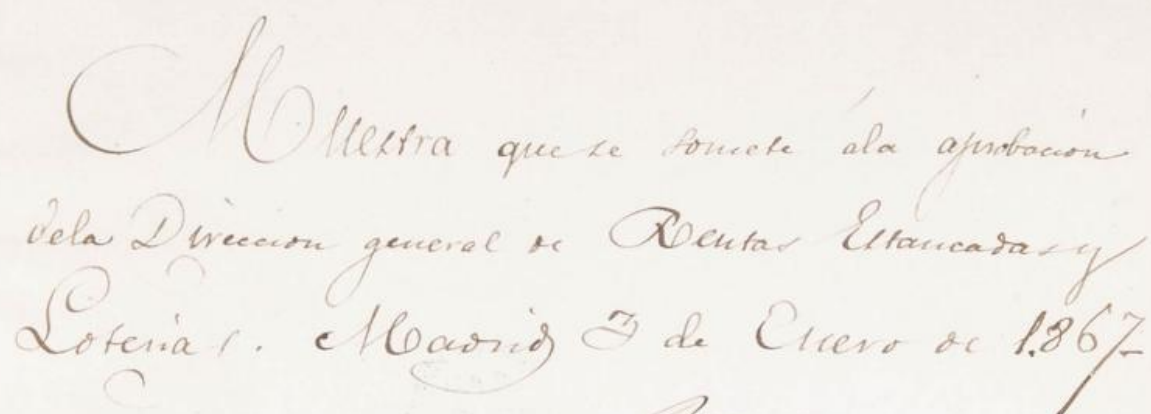 Muestra que se somete á la aprobacion
de la Direccion general de Rentas Estancadas y
Loterias. Madrid 3 de Enero de 1.867-